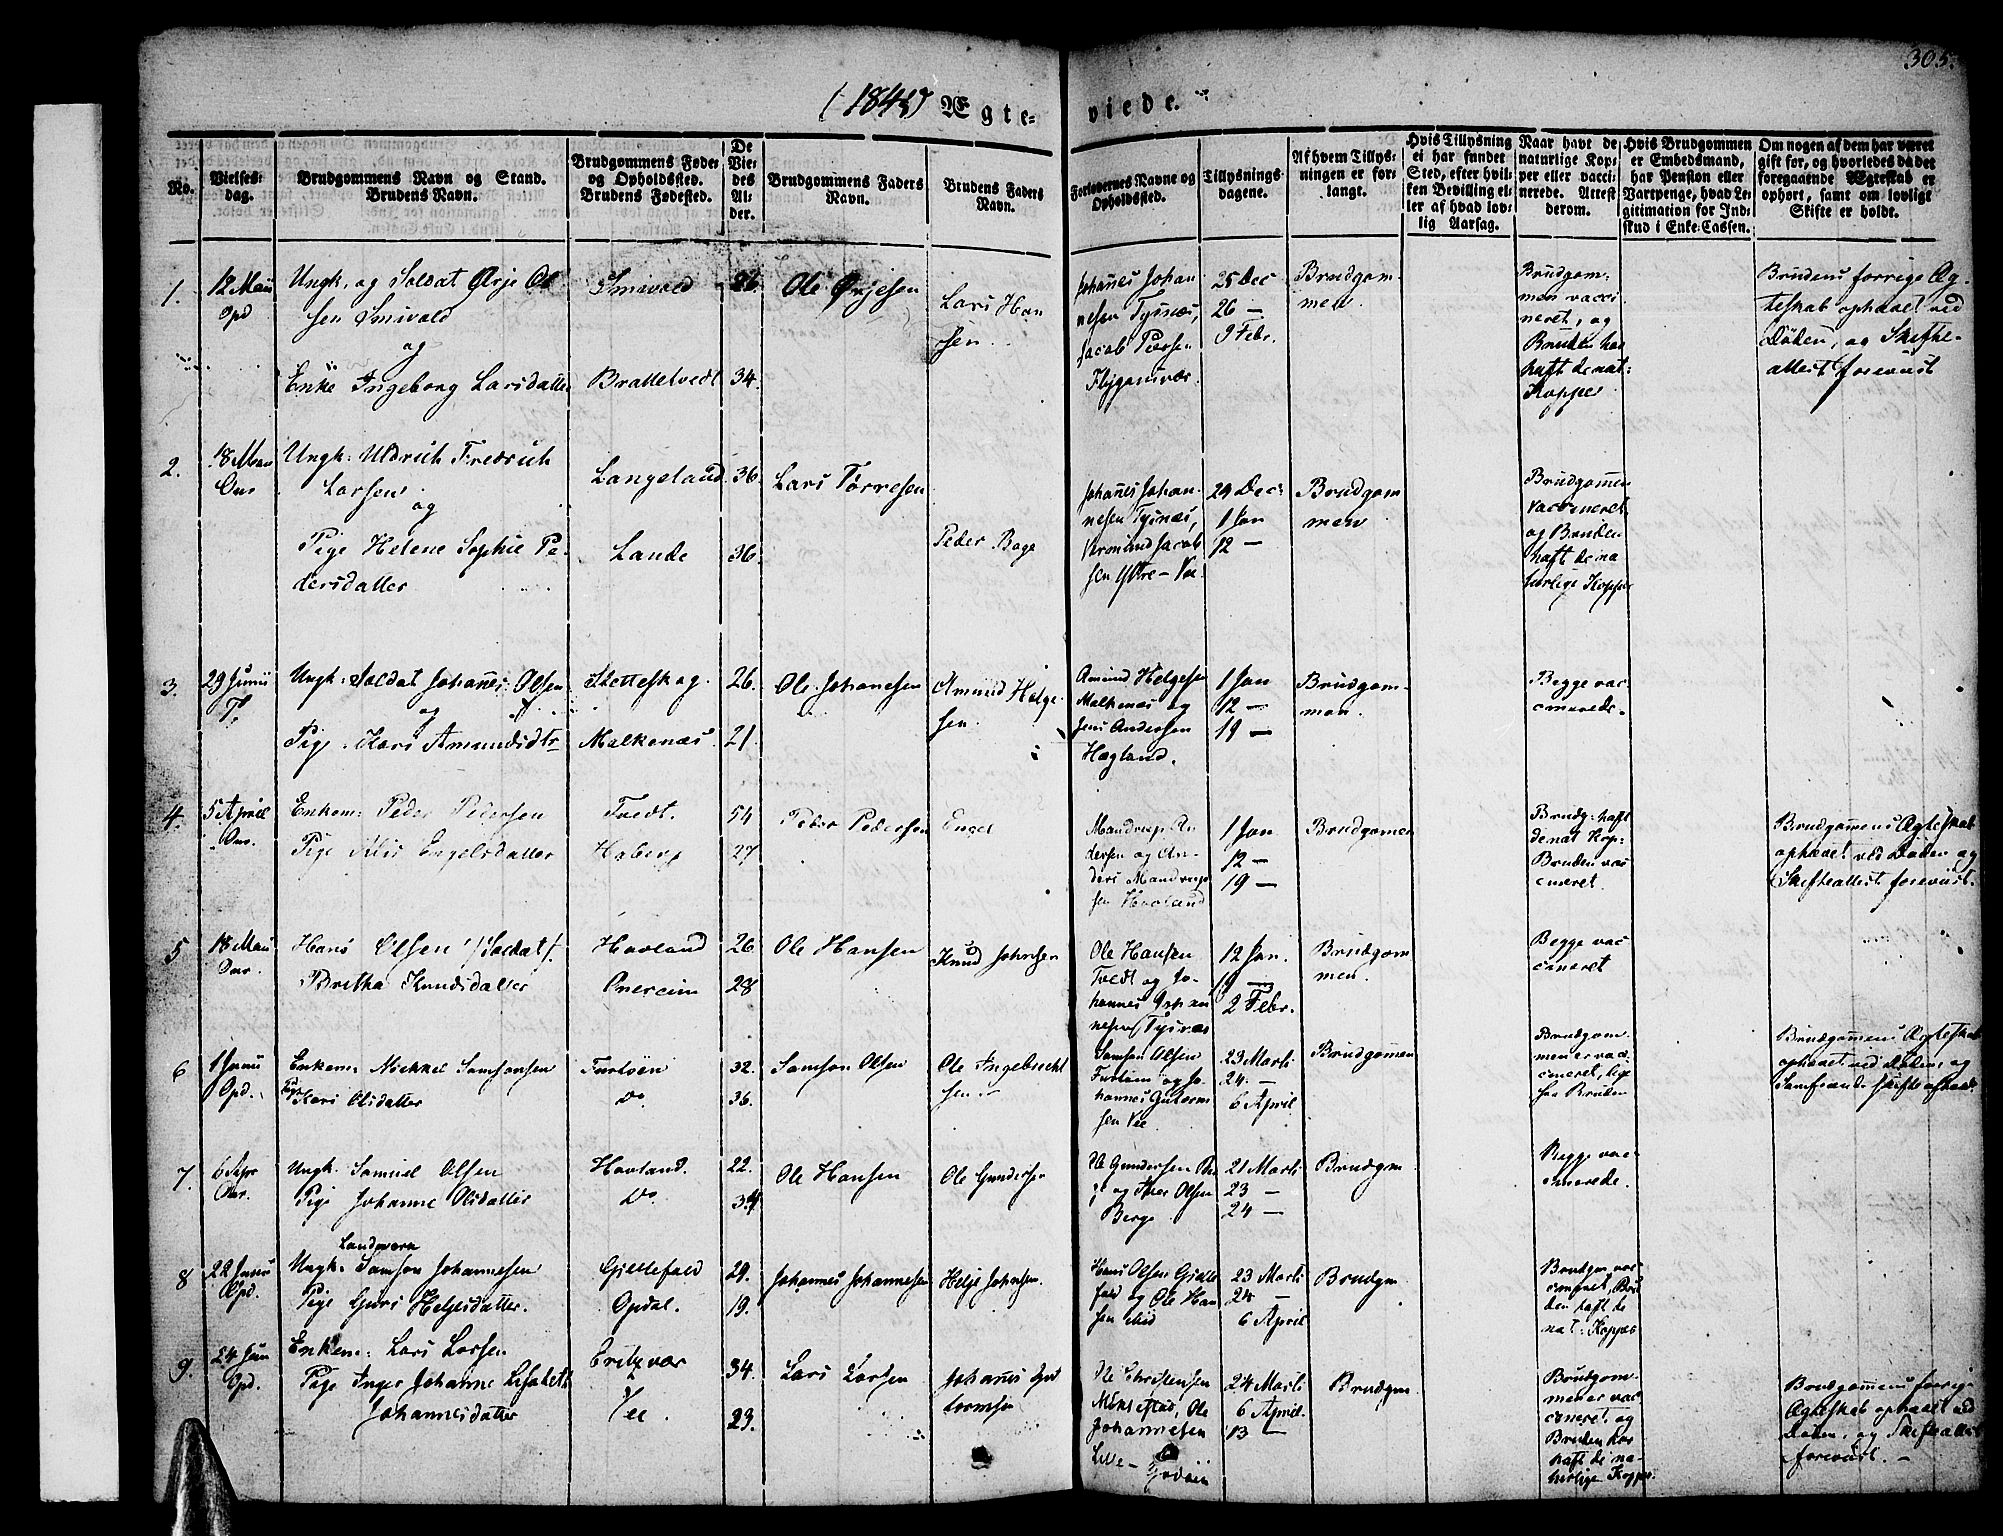 305.
(1845) Ægte-
viede.
No.
Vielses-
dag.
Brudgommens Navn og Stand.
Brudens Navn.
Brudgommens Føde-
og Opholdssted.
Brudens Fødested.
De
Vie-
des
Al-
der.
Brudgommens Faders
Navn.
Brudens Faders
Navn.
Forlovernes Navne og
Opholdssted.
Tillysnings-
dagene.
Af hvem Tillys-
ningen er for-
langt.
Hvis Tillysning
ei har fundet
Sted, efter hvil-
ken Bevilling el-
ler af hvad lov-
lig Aarsag.
Naar havt de
naturlige Kop-
per eller vacci-
nerede. Attest
derom.
Hvis Brudgommen
er Embedsmand,
har Pension eller
Vartpenge, hvad Le-
gitimation for Ind-
skud i Enke-Cassen.
Om nogen af dem har været
gift før, og hvorledes da det
foregaaende Ægteskab er
ophørt, samt om lovligt
Skifte er holdt.
1.
12 Mai
Opd
Ungk. og Soldat Ørje Ol
sen Smivold
og
Enke Ingeborg Larsdatter
Smivold
Brattetvedt
26.
34.
Ole Ørjesen
Lars Han
sen.
Johañes Johan
nesen Tysnæs,
Jacob Peersen
Flygansvær
25 Dec
26 —
9 Febr.
Brudgom-
men
Brudgom-
men vacci
neret, og
Bruden har
haft de nat:
Kopper
Brudens forrige Æg-
teskab ophævet ved
Døden, og Skifte-
attest foreviist
2.
18 Mai
Ons
Ungk: Uldrich Fredrich
Larsen
og
Pige Helene Sophie Pe-
dersdatter
Langeland
Lande
36.
36.
Lars Torresen
Peder Bage
Johañes Johan-
nesen Tysnæs,
Jacob
sen Ydre-Vee.
29 Dec:
1 Jan
12 —
Brudgom-
men
Brudgom̄en
vaccineret
og Bruden
haft de na
turlige Kopper
3.
29 Junii
T.
Ungk: Soldat Johañes Olsen
og
Pige Kari Amundsdtr
Skotteskog.
Malkenæs.
26.
21.
Ole Johanesen
Amund Helge
sen.
Amund Helgesen
Malkenæs og
Jens Andersen
Hægland.
1 Jan
12 —
19 —
Brudgom-
men.
Begge vac-
cinerede.
4.
5 April
Ons.
Enkem: Peder Pedersen
Pige Alis Engelsdatter
Tvedt.
Haberg
54
27
Peder Pedersen
Engel
Mandrup An
dersen og An-
ders Mandrup
sen Hovland
1 Jan
12 —
19 —
Brudgom̄en
Brudg: haft
de nat Kop:
Bruden vac
cineret.
Brudgom̄ens Ægteskab
ophævet ved Døden og
Skifteattest foreviist.
5
18 Mai
Ons.
Hans Olsen /:Soldat:/
Britha Knudsdatter
Hovland
26
28
Ole Hansen
Knud Johnsen
Ole Hansen
Tvedt og Jo-
hannes Johan
nesen Tysnæs
12 Jan.
19 —
2 Febr.
Brudgom
men.
Begge vac
cineret
6
1 Junii
Opd.
Enkem: Mikkel Samsonsen
Pige Kari Olsdatter
do.
32.
36.
Samson Olsen
Ole Ingebrecht
sen
Samson Olsen
og Jo-
hannes Guttorm
sen Vee
23 Marti
24. —
6 April
Brudgom̄en
Brudgom-
men er vac-
cineret, lige
saa Bruden
Brudgom̄ens Ægteskab
ophævet ved Døden, og
Samfrænde Skifte afholdt
7.
6 Apr
Ons.
Ungk. Samuel Olsen
Pige Johanne Olsdatter
Hovland.
Do.
22.
34
Ole Hansen
Ole Gundersen
Ole Gundersen
og Olsen
Berge
21 Marti
23 —
24 —
Brudgom
Begge vac-
cinerede.
8
22 Junii
Opd.
Landværn
Ungk. Samson Johannesen
Pige Guri Helgesdatter.
Gjellefald
Opdal.
29.
19.
Johannes Johannesen
Helge Johnsen.
Hans Olsen Gjelle
fald og Ole Han
sen Mid
23 Marti
24 —
6 April
Brudgom
Brudgom vac-
cineret, Bru
den haft de
nat: Kopper
9.
24 Jun
Opd.
Enkem: Lars Larsen
Pige Inger Johanne Lisabeth
Johannesdatter
Vee
34.
23.
Lars Larsen
Johanes Gut
tormsen
Ole Christensen
Ole
Johannesen
Lille-Godøen
24 Marti
6 April.
13 —
Brudgom
Brudgom-
men er vac
cineret, og
Bruden har
haft de na-
turlige Kopper
Brudgom̄ens forrige
Ægteskab ophævet ved
Døden, og Skifteattest
foreviist. —